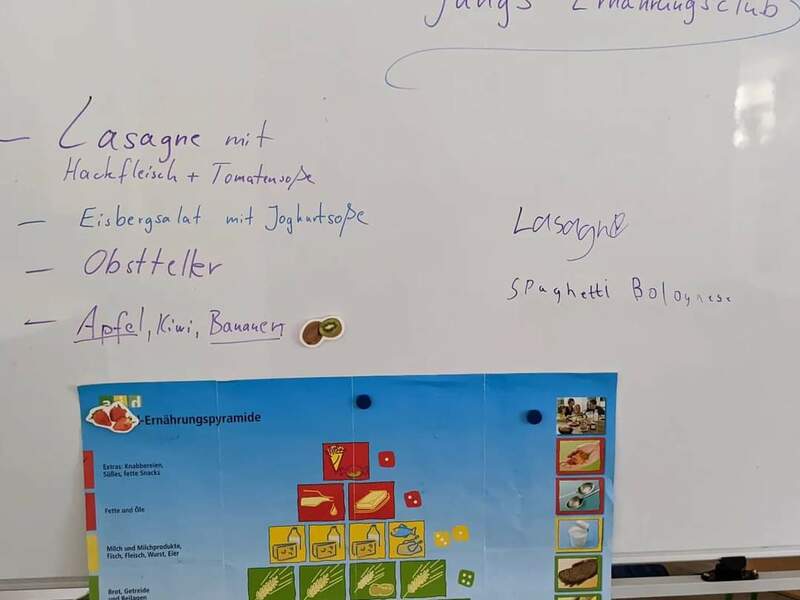 Jungs Ernährungsclub
– Lasagne mit
Hackfleisch + Tomatensoße
– Eisbergsalat mit Joghurtsoße
– Obstteller
– Apfel, Kiwi, Bananen
Lasagne
Spaghetti Bolognese
-Ernährungspyramide
Extras: Knabbereien,
Süßes, fette Snacks
Fette und Öle
Milch und Milchprodukte,
Fisch, Fleisch, Wurst, Eier
Brot, Getreide
und Beilagen